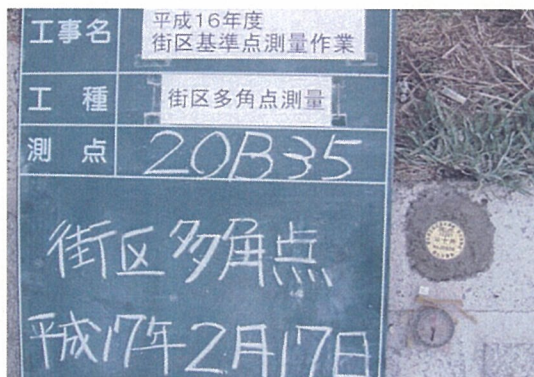 工事名
平成16年度
街区基準点測量作業
工種
街区多角点測量
測点
20B35
街区多角点
平成17年2月17日